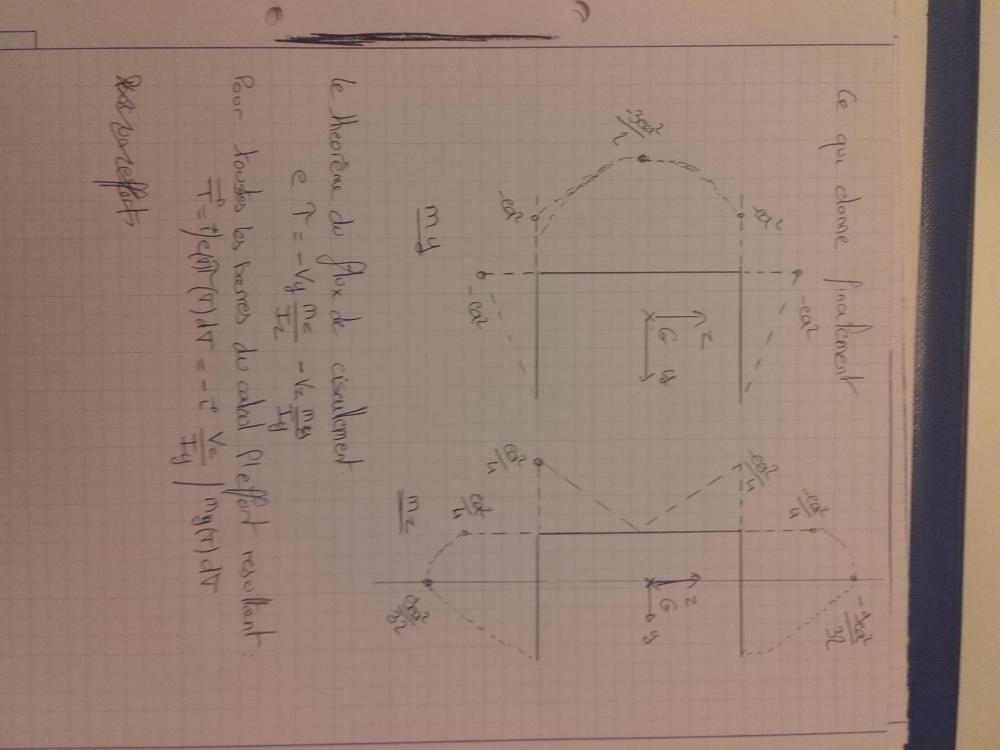 Ce qui donne finalement
-ea²
-ea²
-ea²
-ea²
-3ea²/2
z
G
y
my
-ea²/4
-9ea²/32
-ea²/4
ea²/4
ea²/4
9ea²/32
z
G
y
mz
le théorème du flux de cisaillement:
e τ = -Vy mz/Iz - Vz my/Iy
Pour toutes les barres du calcul l'effort resultant :